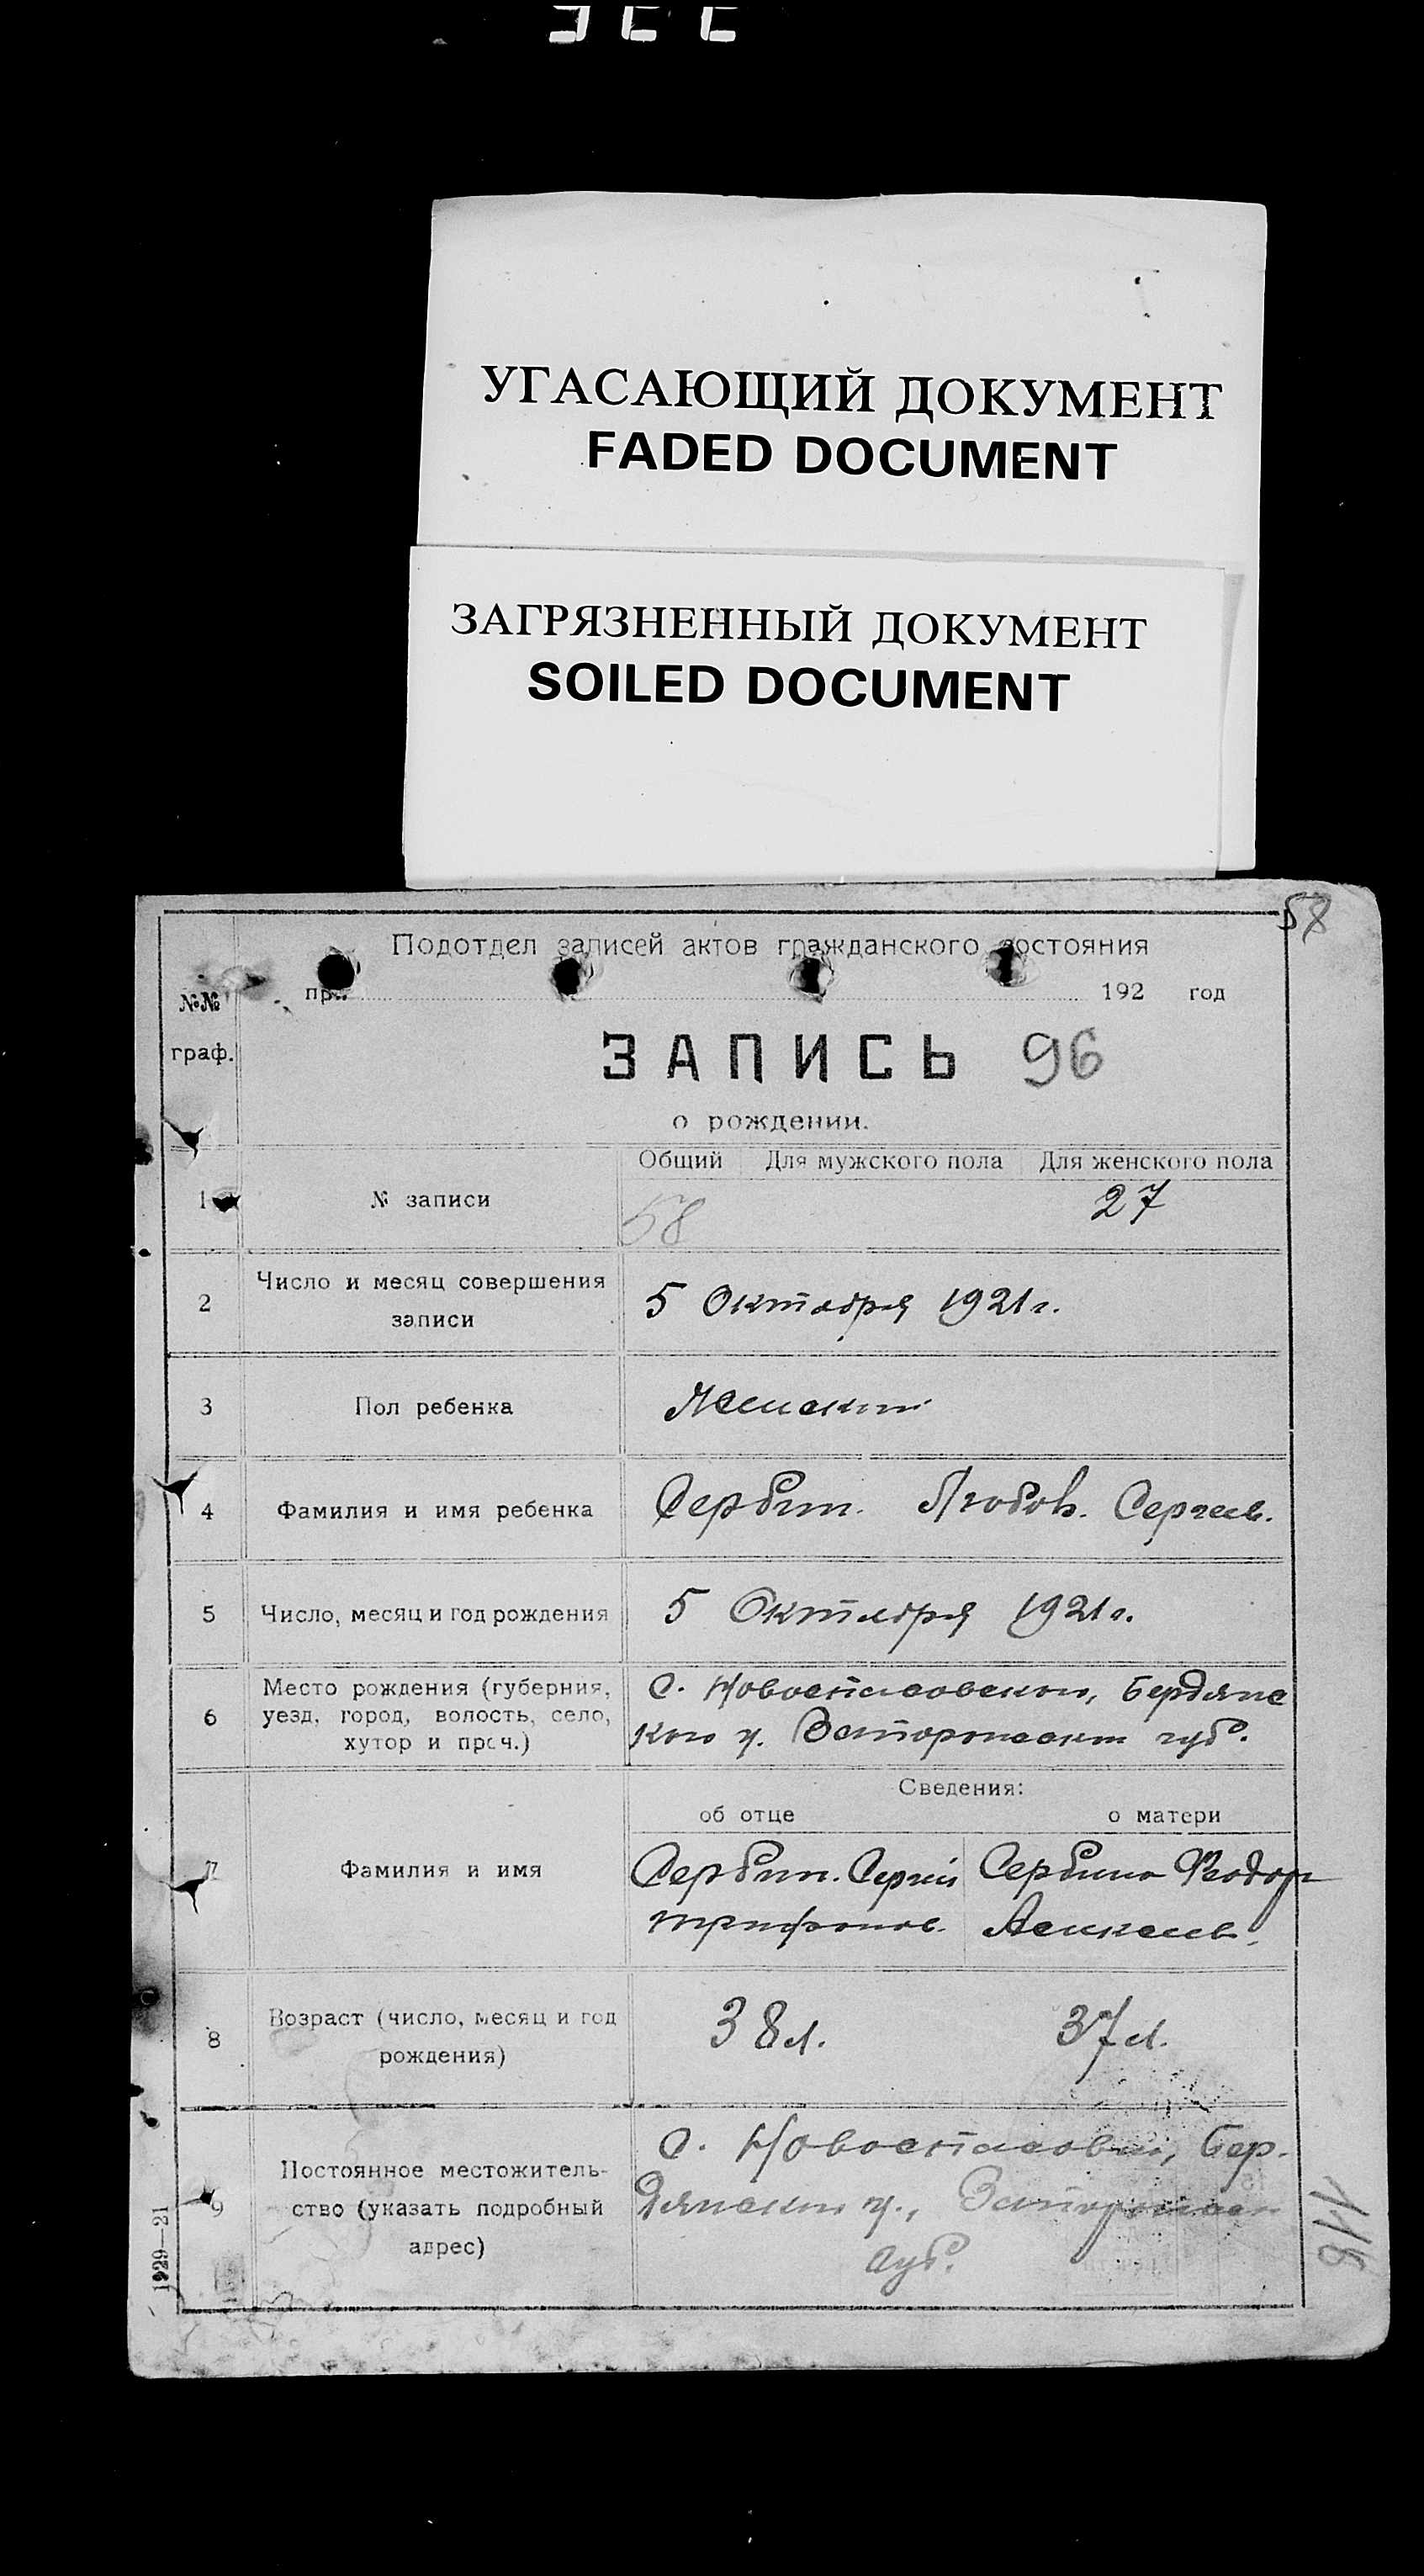 УГАСАЮЩИЙ ДОКУМЕНТ
FADED DOCUMENT
ЗАГРЯЗНЕННЫЙ ДОКУМЕНТ
SOILED DOCUMENT
58
Подотдел записей актов гражданского состояния
при 192 год
№№ граф.
ЗАПИСЬ 96
о рождении.
Общий Для мужского пола Для женского пола
1 № записи 58 27
2 Число и месяц совершения
записи
5 Октября 1921 г.
3 Пол ребенка Женский
4 Фамилия и имя ребенка Сербин. Любовь. Сергеев.
5 Число, месяц и год рождения 5 Октября 1921 г.
6 Место рождения (губерния,
уезд, город, волость, село,
хутор и проч.)
С. Новоспасовском, Бердянс
кого у. Запорожской губ.
Сведения:
об отце о матери
7 Фамилия и имя
Сербин. Сергий Сербина
Трифонов.
8 Возраст (число, месяц и год
рождения)
38 л. 37 л.
9 Постоянное местожитель-
ство (указать подробный
адрес)
С. Новоспасовки, Бер-
дянский у.,
губ.
1929—21
118